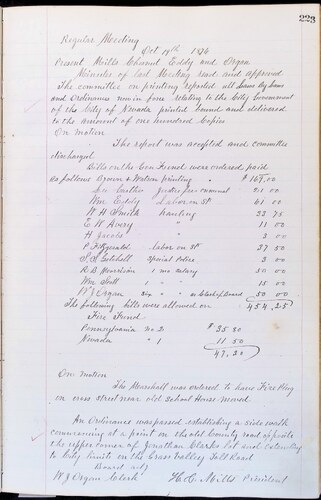 223
Regular Meeting
Oct 19th 1874
Present Mills Eddy and Organ
Minutes of last Meeting read and approved
The committee on printing reported all Laws By Laws
and Ordinances now in force relating to the City Government
of the City of Nevada printed bound and delivered
to the amount of one hundred Copies
On motion
The report was accepted and committee
discharged
Bills on the Gen Fund were ordered paid
as follows Brown & Watson printing $169.00
Justice fees criminal 21 00
Wm Eddy Labor on St 61 00
W H Smith hauling 23 75
E W Avery " 11 00
H Jacobs " 3 00
P Fitzgerald labor on St 27 50
Special Police 3 00
R B Morrison 1 mo salary 50 00
Wm Scott 1 " " 15 00
W J Organ " " as Clerk of Board 50 00
The following bills were allowed on 454.25
Fire Fund
Pennsylvania No 2 $35.80
Nevada " 1 11 50
47,30
On motion
The Marshall was ordered to have Fire Plug
on cross street near old School House moved
An Ordinance was passed establishing a side walk
commencing at a point on the old County road opposite
the upper corner of Jonathan Clarks lot and extending
to City limits on the Grass Valley Toll Road
Board adj
W J Organ Clerk H. C. Mills President